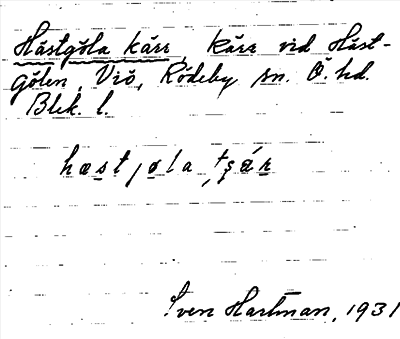 Hästgöla kärr, kärr vid Häst-
gölen, Viö, Rödeby sn. Ö. hd.
Blek. l.
hæstjøla
Sven Hartman, 1931